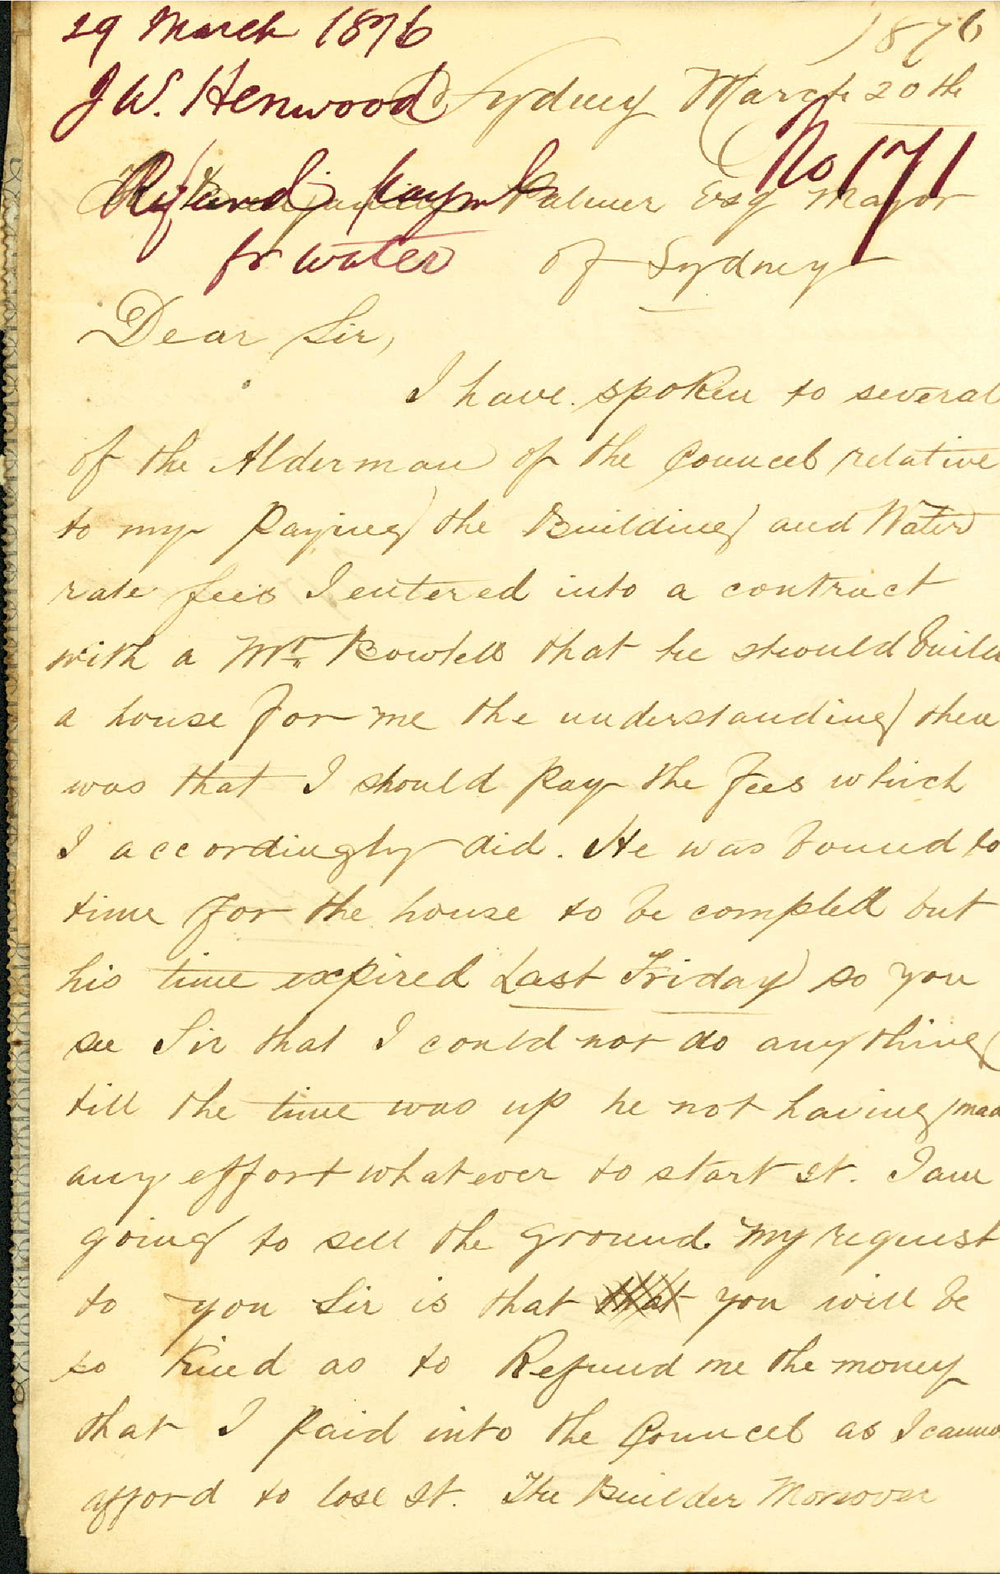 29 March 1876
1876
J W. Henwood
Sydney March 20th
No 171
Refund paym
Palmer Esq Mayor
for water
of Sydney
Dear Sir,
I have spoken to several
of the Alderman of the Councel relative
to my Paying the Building and Water
rate fees I entered into a contract
with a Mr. Bowtell that he should build
a house for me the understanding then
was that I should pay the fees which
I accordingly did. He was bound to
time for the house to be complett but
his time expired Last Friday so you
see Sir that I could not do anything
till the time was up he not having mad
any effort whatever to start it. I am
going to sell the ground. My request
to you Sir is that that you will be
so kind as to Refund me the money
that I paid into the Councel as I canno
afford to lose it. The Builder Moreover